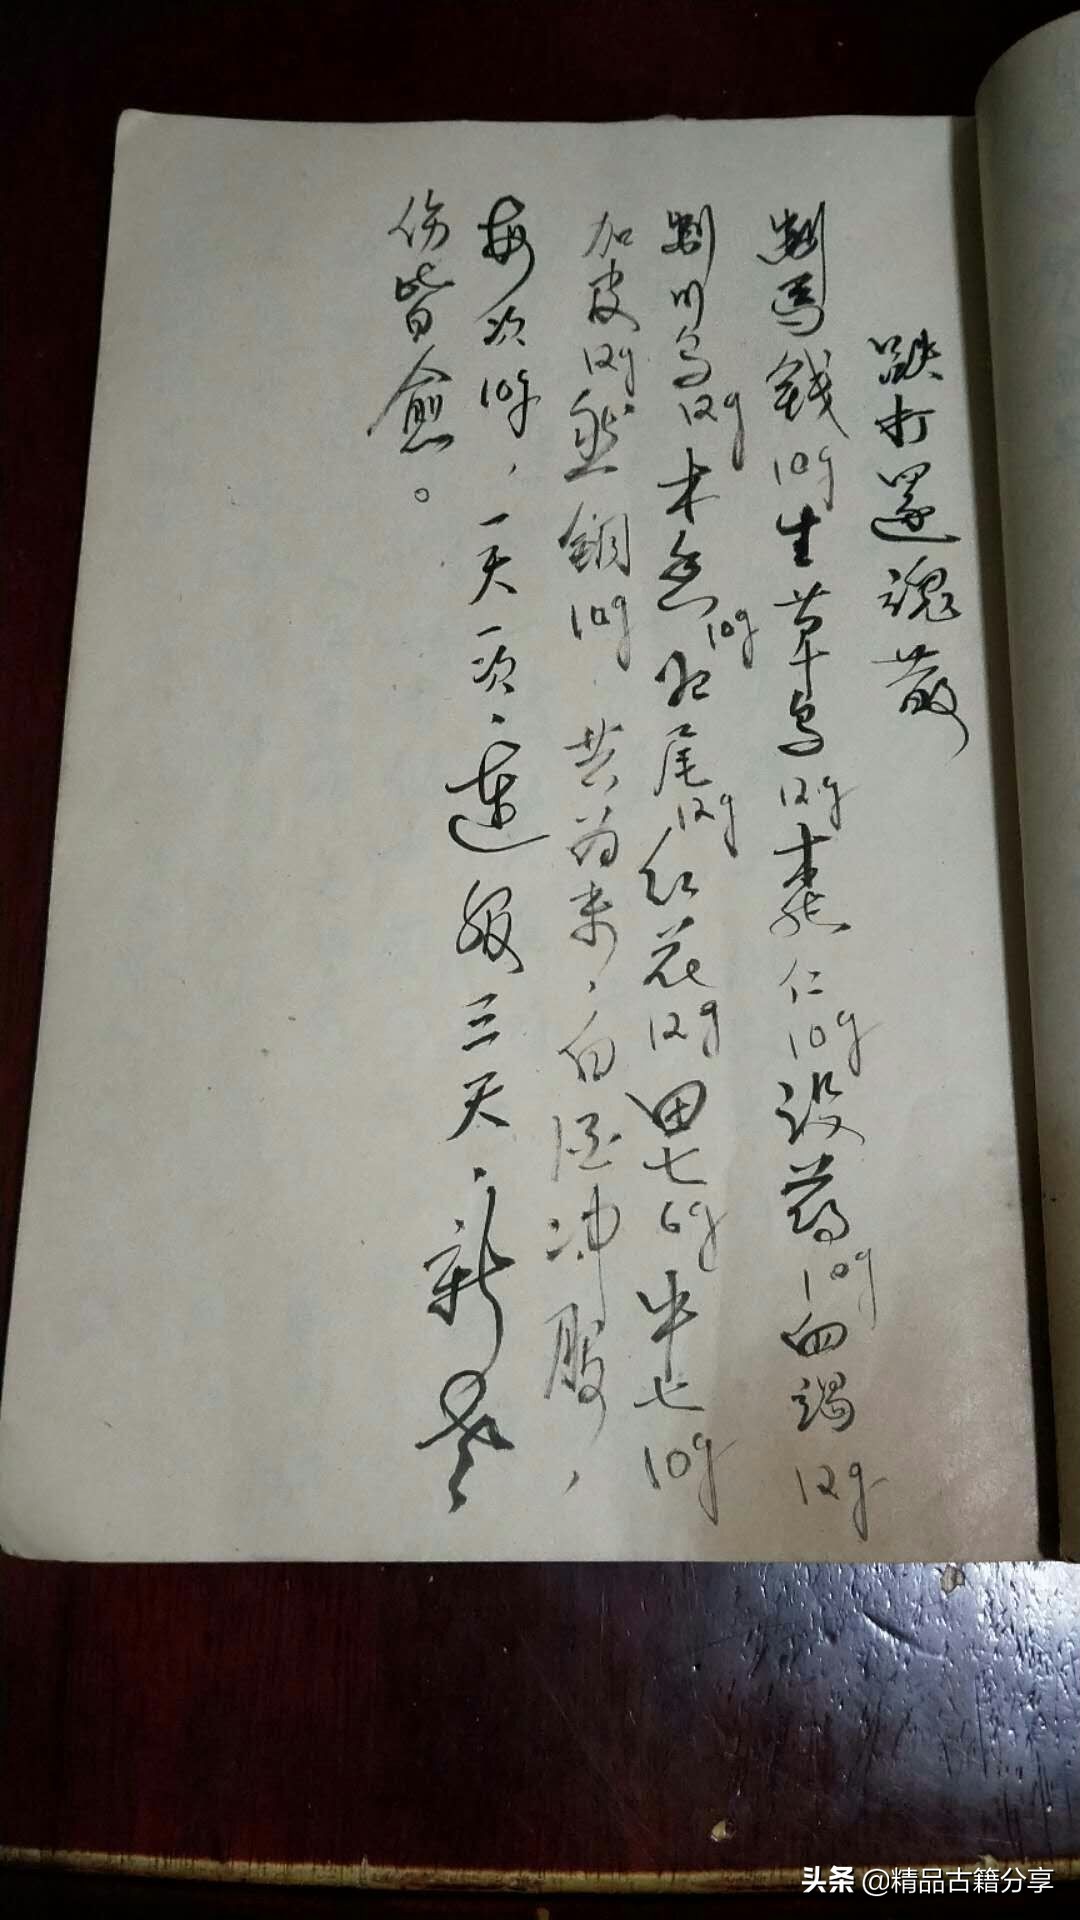 跌打還魂散
制馬錢10g生草烏12g桃仁10g没药10g血竭12g
制川烏12g木香10g归尾12g红花12g田七6g半七10g
加皮12g然銅10g 共为末,白酒冲服,
每次10g,一天一次、连服三天、新老
伤皆愈。
头条 @精品古籍分享